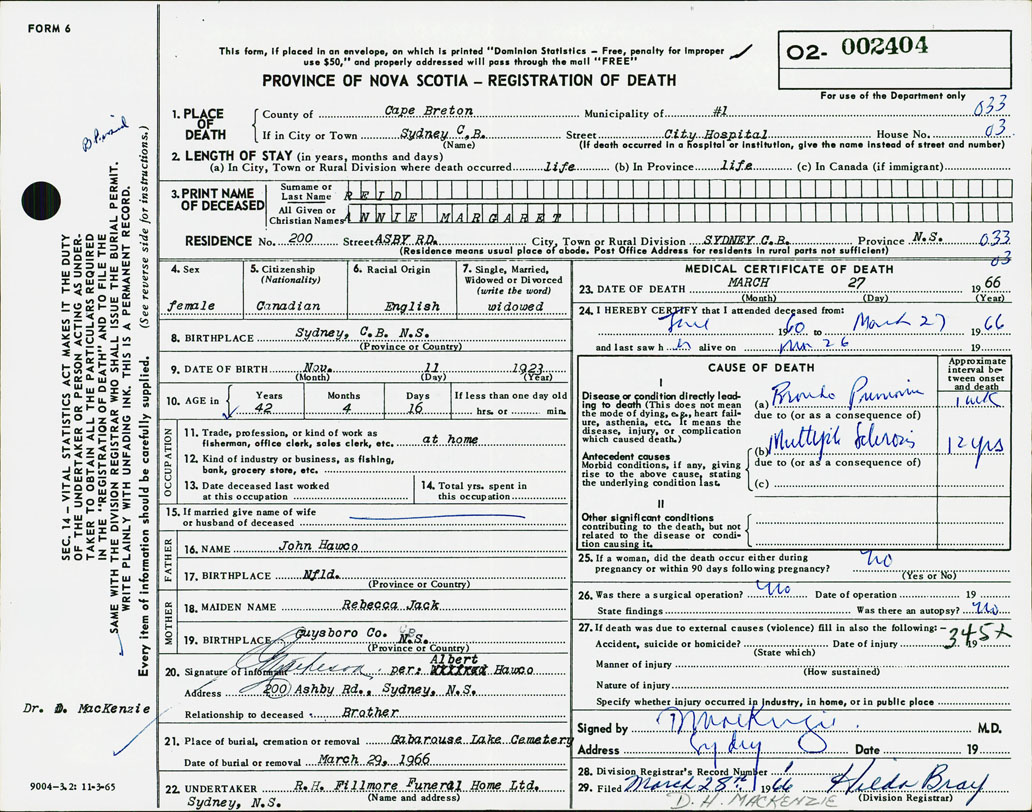 FORM 6
This form, if placed in an envelope, on which is printed "Dominion Statistics — Free, penalty for improper
use $50," and properly addressed will pass through the mail "FREE"
O2- 002404
PROVINCE OF NOVA SCOTIA – REGISTRATION OF DEATH
For use of the Department only
1. PLACE OF DEATH
County of Cape Breton Municipality of #1 033
If in City or Town Sydney C.B. Street City Hospital House No. 03
(Name) (If death occurred in a hospital or institution, give the name instead of street and number)
2. LENGTH OF STAY (in years, months and days)
(a) In City, Town or Rural Division where death occurred life (b) In Province life (c) In Canada (if immigrant)
3. PRINT NAME OF DECEASED
Surname or Last Name REID
All Given or Christian Names ANNIE MARGARET
RESIDENCE No. 200 Street ASBY RD. City, Town or Rural Division SYDNEY C.B. Province N.S. 033
(Residence means usual place of abode. Post Office Address for residents in rural parts not sufficient) 03
4. Sex
female
5. Citizenship
(Nationality)
Canadian
6. Racial Origin
English
7. Single, Married,
Widowed or Divorced
(write the word)
widowed
8. BIRTHPLACE Sydney, C.B. N.S.
(Province or Country)
9. DATE OF BIRTH Nov. 11 1923
(Month) (Day) (Year)
10. AGE in Years Months Days If less than one day old
42 4 16 hrs. or min.
OCCUPATION
11. Trade, profession, or kind of work as
fisherman, office clerk, sales clerk, etc. at home
12. Kind of industry or business, as fishing,
bank, grocery store, etc.
13. Date deceased last worked
at this occupation
14. Total yrs. spent in
this occupation
15. If married give name of wife
or husband of deceased
FATHER
16. NAME John Hawco
17. BIRTHPLACE Nfld.
(Province or Country)
MOTHER
18. MAIDEN NAME Rebecca Jack
19. BIRTHPLACE Guysboro Co. N.S.
(Province or Country)
20. Signature of informant per: Albert Hawco
Address 200 Ashby Rd., Sydney, N.S.
Relationship to deceased Brother
21. Place of burial, cremation or removal Gabarouse Lake Cemetery
Date of burial or removal March 29, 1966
22. UNDERTAKER R.H. Fillmore Funeral Home Ltd.
Sydney, N.S. (Name and address)
MEDICAL CERTIFICATE OF DEATH
23. DATE OF DEATH MARCH 27 1966
(Month) (Day) (Year)
24. I HEREBY CERTIFY that I attended deceased from:
1960 to March 27 1966
and last saw h alive on Mar 26 19
CAUSE OF DEATH
Approximate
interval be-
tween onset
and death
I
Disease or condition directly lead-
ing to death (This does not mean
the mode of dying, e.g., heart fail-
ure, asthenia, etc. It means the
disease, injury, or complication
which caused death.)
(a) Broncho Pneumonia 1 wk
due to (or as a consequence of)
Antecedent causes
Morbid conditions, if any, giving
rise to the above cause, stating
the underlying condition last.
(b) Multiple Sclerosis 12 yrs
due to (or as a consequence of)
(c)
II
Other significant conditions
contributing to the death, but not
related to the disease or condi-
tion causing it.
25. If a woman, did the death occur either during
pregnancy or within 90 days following pregnancy? no
(Yes or No)
26. Was there a surgical operation? no Date of operation 19
State findings Was there an autopsy? no
27. If death was due to external causes (violence) fill in also the following:–
345X
Accident, suicide or homicide? Date of injury 19
(State which)
Manner of injury
(How sustained)
Nature of injury
Specify whether injury occurred in industry, in home, or in public place
Signed by MacKenzie M.D.
Address Sydney Date 19
28. Division Registrar's Record Number
29. Filed March 28th 1966 Hilda Bray
(Division Registrar)
D. H. MACKENZIE
SEC. 14 – VITAL STATISTICS ACT MAKES IT THE DUTY
OF THE UNDERTAKER OR PERSON ACTING AS UNDER-
TAKER TO OBTAIN ALL THE PARTICULARS REQUIRED
IN THE "REGISTRATION OF DEATH" AND TO FILE THE
SAME WITH THE DIVISION REGISTRAR WHO SHALL ISSUE THE BURIAL PERMIT.
WRITE PLAINLY WITH UNFADING INK. THIS IS A PERMANENT RECORD.
Every item of information should be carefully supplied. (See reverse side for instructions.)
Dr. D. MacKenzie
9004-3.2: 11-3-65